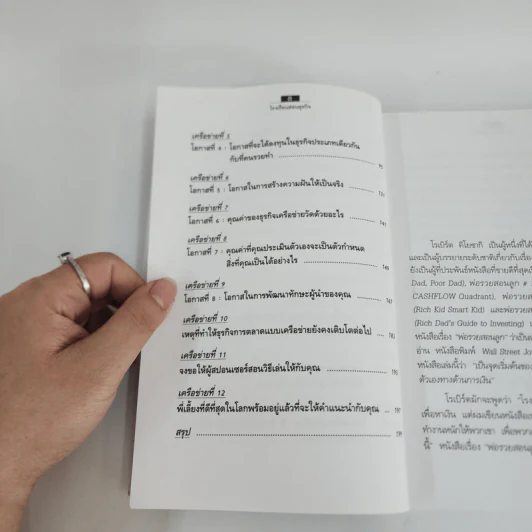 โรงเรียนสอนธุรกิจ
เครือข่ายที่ 5
โอกาสที่ 4 : โอกาสที่จะได้ลงทุนในธุรกิจประเภทเดียวกัน
กับที่คนรวยทำ
เครือข่ายที่ 6
โอกาสที่ 5 : โอกาสในการสร้างความฝันให้เป็นจริง
เครือข่ายที่ 7
โอกาสที่ 6 : คุณค่าของธุรกิจเครือข่ายวัดด้วยอะไร
เครือข่ายที่ 8
โอกาสที่ 7 : คุณค่าที่คุณประเมินตัวเองจะเป็นตัวกำหนด
สิ่งที่คุณเป็นได้อย่างไร
เครือข่ายที่ 9
โอกาสที่ 8 : โอกาสในการพัฒนาทักษะผู้นำของคุณ
เครือข่ายที่ 10
เหตุที่ทำให้ธุรกิจการตลาดแบบเครือข่ายยังคงเติบโตต่อไป
เครือข่ายที่ 11
จงขอให้ผู้สปอนเซอร์สอนวิธีเล่นให้กับคุณ
เครือข่ายที่ 12
พี่เลี้ยงที่ดีที่สุดในโลกพร้อมอยู่แล้วที่จะให้คำแนะนำกับคุณ
สรุป
โรเบิร์ต คิโยซากิ เป็นผู้หนึ่งที่ได้
และเป็นผู้บรรยายระดับชาติเกี่ยวกับเรื่อง
ยังเป็นผู้ที่ประพันธ์หนังสือที่ขายดีที่สุด
Dad, Poor Dad), พ่อรวยสอนลูก
CASHFLOW Quadrant), พ่อรวยสอน
(Rich Kid Smart Kid) และพ่อรวยส
(Rich Dad's Guide to Investing)
หนังสือเรื่อง "พ่อรวยสอนลูก" ว่าเป็น
อ่าน หนังสือพิมพ์ Wall Street Jo
หนังสือเล่มนี้ว่า "เป็นจุดเริ่มต้นของ
ตัวเองทางด้านการเงิน"
โรเบิร์ตมักจะพูดว่า "โรง
เพื่อหาเงิน แต่ผมเขียนหนังสือ
ทำงานหนักให้พวกเขา เพื่อพวก
นี้" หนังสือเรื่อง "พ่อรวยสอน